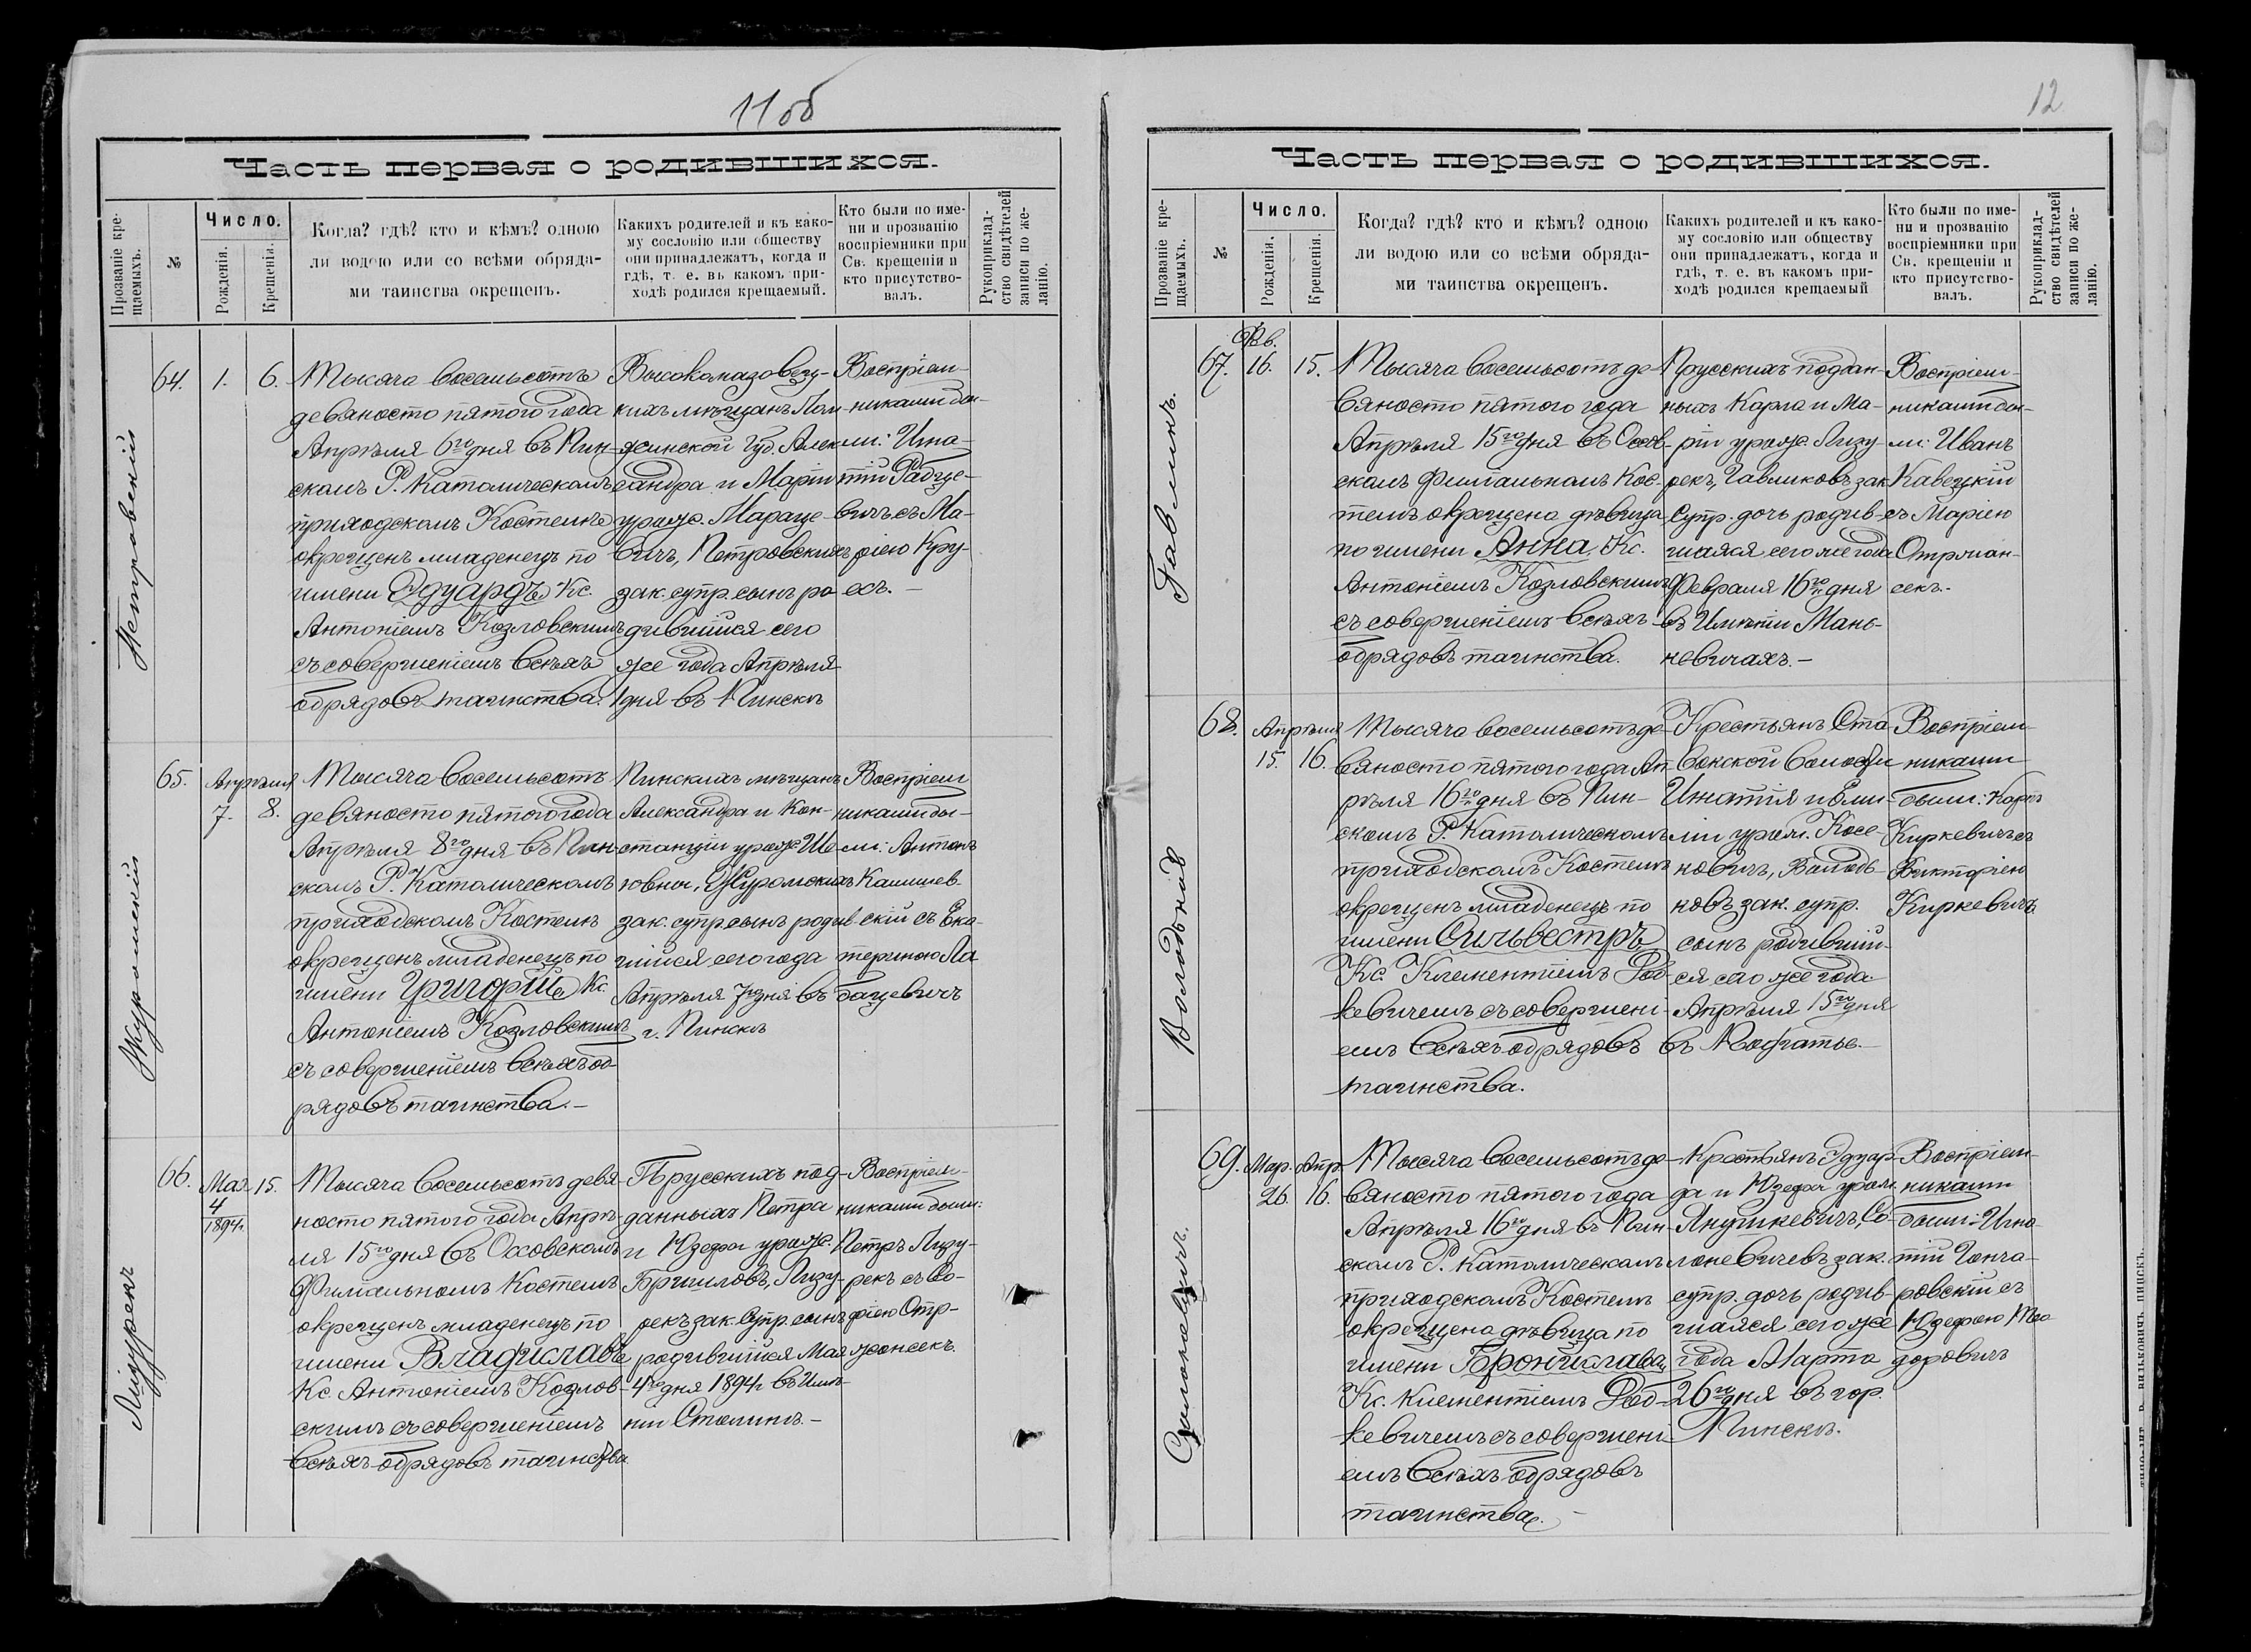 11 об
Часть первая о родившихся.
Прозваніе крещаемыхъ.
№
Число.
Рожденія.
Крещенія.
Когда? гдѣ? кто и кѣмъ? одною
ли водою или со всѣми обряда-
ми таинства окрещенъ.
Какихъ родителей и къ како-
му сословію или обществу
они принадлежатъ, когда и
гдѣ, т. е. въ какомъ при-
ходѣ родился крещаемый.
Кто были по име-
ни и прозванію
воспріемники при
Св. крещеніи и
кто присутство-
валъ.
Рукоприклад-
ство свидѣтелей
записи по же-
ланію.
Петровскій
64.
1.
6.
Тысяча восемьсотъ
девяносто пятого года
Апрѣля 6го дня въ Пин-
скомъ Р. Католическомъ
приходскомъ Костелѣ
окрещенъ младенецъ по
имени Эдуардъ Кс.
Антоніемъ Козловскимъ
съ совершеніемъ всѣхъ
обрядовъ таинства.
Высокомазовец-
кихъ мѣщанъ Лом-
жинской Губ. Алек
сандра и Маріи
урожд. Мараце-
вичъ, Петровскихъ
зак. супр. сынъ ро-
дившійся сего
же года Апрѣля
1 дня въ Пинскѣ
Воспріем-
никами бы-
ли: Игна-
тій Рабце-
вичъ съ Ма-
ріею Кру-
есъ.
Журомскій
65.
Апрѣля
7.
8.
Тысяча восемьсотъ
девяносто пятого года
Апрѣля 8го дня въ Пин
скомъ Р. Католическомъ
приходскомъ Костелѣ
окрещенъ младенецъ по
имени Григорій Кс.
Антоніемъ Козловскимъ
съ совершеніемъ всѣхъ об-
рядовъ таинства.
Пинскихъ мѣщанъ
Александра и Кон-
станціи урожд. Ше
ювны, Журомскихъ
зак. супр. сынъ родив
шійся сего года
Апрѣля 7го дня въ
г. Пинскѣ
Воспріем
никами бы-
ли: Антонъ
Калишев-
скій съ Ека-
териною Ла
бацевичъ
Лизурекъ
66.
Мая
4
1894г.
15.
Тысяча восемьсотъ девя-
носто пятого года Апрѣ-
ля 15го дня въ Оховскомъ
Филіальномъ Костелѣ
окрещенъ младенецъ по
имени Владиславъ
Кс. Антоніемъ Козлов-
скимъ съ совершеніемъ
всѣхъ обрядовъ таинства
Прусскихъ под-
данныхъ Петра
и Юзефы урожд.
Бриловъ, Лизу-
рекъ зак. супр. сынъ
родившійся Мая
4го дня 1894г въ Имѣ-
ніи Столинѣ.
Воспріем-
никами были:
Петръ Лизу-
рекъ съ Со-
фіею Отр-
жонсекъ.
12
Часть первая о родившихся.
Прозваніе крещаемыхъ.
№
Число.
Рожденія.
Крещенія.
Когда? гдѣ? кто и кѣмъ? одною
ли водою или со всѣми обряда-
ми таинства окрещенъ.
Какихъ родителей и къ како-
му сословію или обществу
они принадлежатъ, когда и
гдѣ, т. е. въ какомъ при-
ходѣ родился крещаемый
Кто были по име-
ни и прозванію
воспріемники при
Св. крещеніи и
кто присутство-
валъ.
Рукоприклад-
ство свидѣтелей
записи по же-
ланію.
Гавликъ.
67.
Фев.
16.
15.
Тысяча восемьсотъ де-
вяносто пятого года
Апрѣля 15го дня въ Охов-
скомъ Филіальномъ Кос-
телѣ окрещена дѣвица
по имени Анна, Кс.
Антоніемъ Козловскимъ
съ совершеніемъ всѣхъ
обрядовъ таинства.
Прусскихъ поддан-
ныхъ Карла и Ма-
ріи урожд. Лизу-
рекъ, Гавликовъ зак
супр. дочь родив-
шаяся сего же года
Февраля 16го дня
въ Имѣніи Мань-
кевичахъ.
Воспріем-
никами бы-
ли: Иванъ
Кавецкій
съ Маріею
Отржан-
секъ.
Володько
68.
Апрѣля
15.
16.
Тысяча восемьсотъ де-
вяносто пятого года Ап
рѣля 16го дня въ Пин-
скомъ Р. Католическомъ
приходскомъ Костелѣ
окрещенъ младенецъ по
имени Сильвестръ
Кс. Клементіемъ Род-
кевичемъ съ совершені-
емъ всѣхъ обрядовъ
таинства.
Крестьянъ Ста
вокской волости
Игнатія и Еми-
ліи урожд. Косе-
новичъ, Володь-
ковъ зак. супр.
сынъ родивший-
ся сего же года
Апрѣля 15го дня
въ Посѣничахъ
Воспріем-
никами
были: Карлъ
Киркевичъ съ
Викторіею
Киркевичъ
Солоневичъ.
69.
Мар.
26.
Апр.
16.
Тысяча восемьсотъ де-
вяносто пятого года
Апрѣля 16го дня въ Пин-
скомъ Р. Католическомъ
приходскомъ Костелѣ
окрещена дѣвица по
имени Бронислава,
Кс. Клементіемъ Род-
кевичемъ съ совершені-
емъ всѣхъ обрядовъ
таинства.
Крестьянъ Эдуар-
да и Юзефы урожд.
Янушкевичъ, Со-
лоневичевъ зак.
супр. дочь родив-
шаяся сего же
года Марта
26го дня въ гор.
Пинскѣ.
Воспріем-
никами
были: Игна
тій Гонча-
ровскій съ
Юзефою Тео
доровичъ